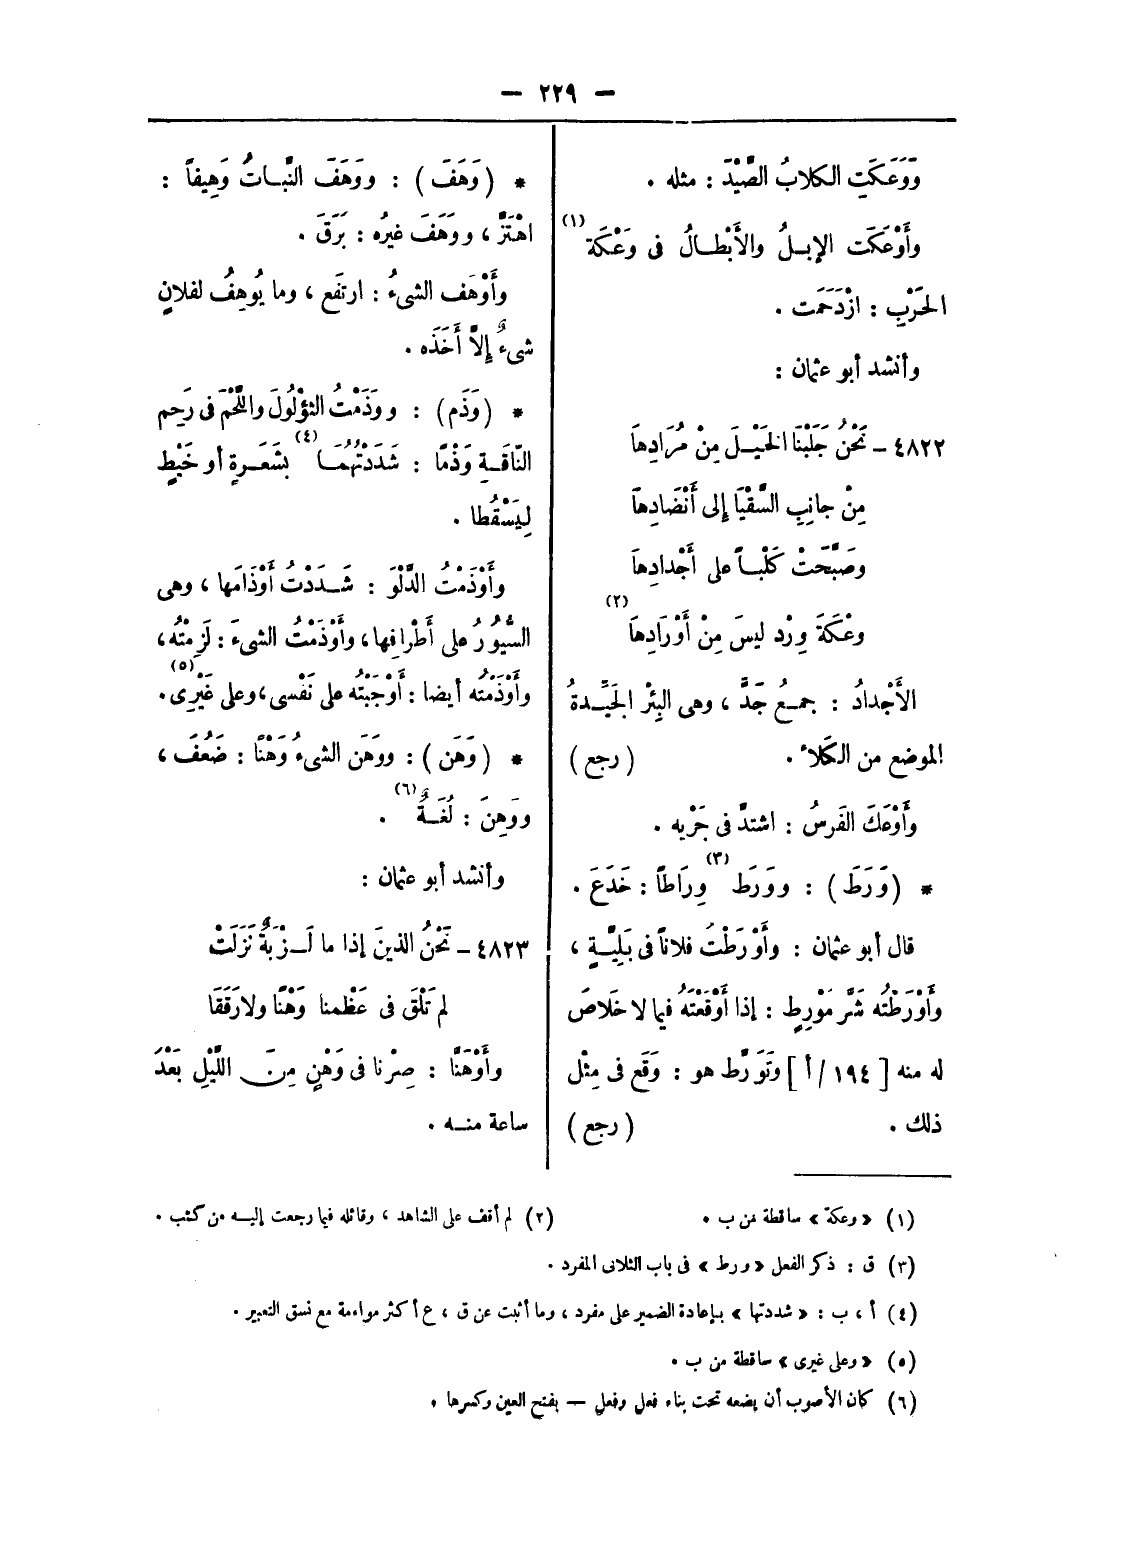 — ٢٢٩ —
وَوَعَكَتِ الكلابُ الصَّيْدَ : مثله .
وأَوْعَكَت الإبلُ والأَبْطالُ فى وَعْكَة (١)
الحَرْبِ : ازْدَحَمَت .
وأنشد أبو عثمان :
٤٨٢٢ – نَحْنُ جَلَبْنَا الخَيْلَ مِنْ مُرَادِهَا
مِنْ جانِبِ السُّقْيَا إلى أَنْضَادِهَا
وصَبَّحَتْ كَلْباً على أَجْدادِهَا
وعْكَةَ وِرْد ليسَ مِنْ أَوْرَادِهَا (٢)
الأَجْدادُ : جمعُ جَدَّ ، وهى البِئْر الجَيِّدةُ
الموضع من الكَلأ . ( رجع )
وأَوْعَكَ الفَرسُ : اشتدَّ فى جَرْيه .
* ( وَرَطَ ) : ووَرَط (٣) وِرَاطاً : خَدَعَ .
قال أبو عثمان : وأَوْرَطْتُ فلاناً فى بَلِيَّةٍ ،
وأَوْرَطْتُه شَرَّ مَوْرِطٍ : إذا أَوْقَعْتَهُ فيما لا خلاصَ
له منه [ ١٩٤ / أ ] وتَوَرَّط هو : وَقَع فى مِثْل
ذلك . ( رجع )
* ( وَهَفَ ) : ووَهَفَ النَّباتُ وَهِيفاً :
اهْتَزَّ ، ووَهَفَ غيرُه : بَرَقَ .
وأَوْهَف الشىءُ : ارتفَع ، وما يُوهِفُ لفلانٍ
شىءٌ إلاَّ أَخَذَه .
* (وَذَم) : ووَذَمْتُ الثؤْلُولَ واللَّحْمَ فى رَحِم
النَّاقَةِ وَذْمًا : شَدَدْتُهُمَا (٤) بشَعَرةٍ أو خَيْطٍ
لِيَسْقُطا .
وأَوْذَمْتُ الدَّلْوَ : شَدَدْتُ أَوْذَامَها ، وهى
السُّيُورُ على أَطْرافِها، وأَوْذَمْتُ الشىءَ : لَزِمْتُه،
وأَوْذَمْتُه أيضا : أَوْجَبْتُه على نَفْسى، وعلى غَيْرِى (٥).
* ( وَهَن ) : ووَهَن الشىءُ وَهْنًا : ضَعُفَ ،
ووَهِنَ : لُغَةٌ (٦) .
وأنشد أبو عثمان :
٤٨٢٣ – نَحْنُ الذينَ إذا ما لَزْبَةٌ نَزَلَتْ
لم تَلْقَ فى عَظْمنا وَهْنًا ولا رَقَقَا
وأَوْهَنَّا : صِرْنا فى وَهْنٍ مِنَ اللَّيْلِ بَعْدَ
ساعة منه .
(١) « وعكة » ساقطة من ب . (٢) لم أقف على الشاهد ، وقائله فيما رجعت إليه من كتب .
(٣) ق : ذكر الفعل « ورط » فى باب الثلاثى المفرد .
(٤) أ ، ب : « شددتها » بإعادة الضمير على مفرد ، وما أثبت عن ق ، ع أكثر مواءمة مع نسق التعبير .
(٥) « وعلى غيرى » ساقطة من ب .
(٦) كان الأصوب أن يضعه تحت بناء فعل وفعل — بفتح العين وكسرها .